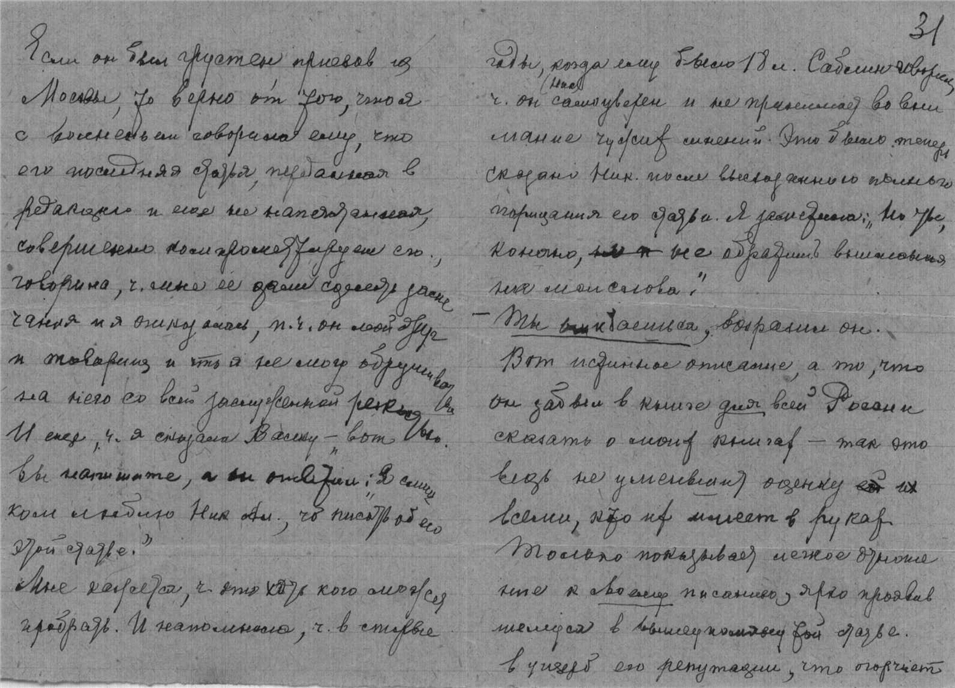 Если он был грустен приехав из
Москвы, то верно от того, что я
с волненьем говорила ему, что
его последняя статья, переданная в
редакцию и еще не напечатанная,
совершенно компрометирует его,
говорила, ч. мне ее дали сделать заме
чания и я отказалась, п.ч. он мой друг
и товарищ и что я не могу обрушивать
на него со всей заслуженной резкостью.
И еще, ч. я сказала Ваську – "вот
вы напишите, а он ответил: "Я слиш
ком люблю Ник Ал., чтоб писать об его
этой статье."
Мне кажется, ч. это хоть кого может
пробрать. И напомнила, ч. в старые
31
годы, когда ему было 18 л. Саблин говорил,
ч. он самоуверен и не принимает во вни
мание чужих мнений. Это было теперь
сказано Ник. после высказанного полного
порицания его статьи. Я заметила: "Но ты,
конечно, не обратишь внимания
на мои слова."
– Ты ошибаешься, возразил он.
Вот истинное описание, а то, что
он забыл в книге для всей России
сказать о моих книгах – так это
ведь не уменьшит оценку их
всеми, кто их имеет в руках
Только показывает легкое отноше
ние к своему писанию, ярко проявив
шемуся в вышеупомянутой статье.
в ущерб его репутации, что огорчает